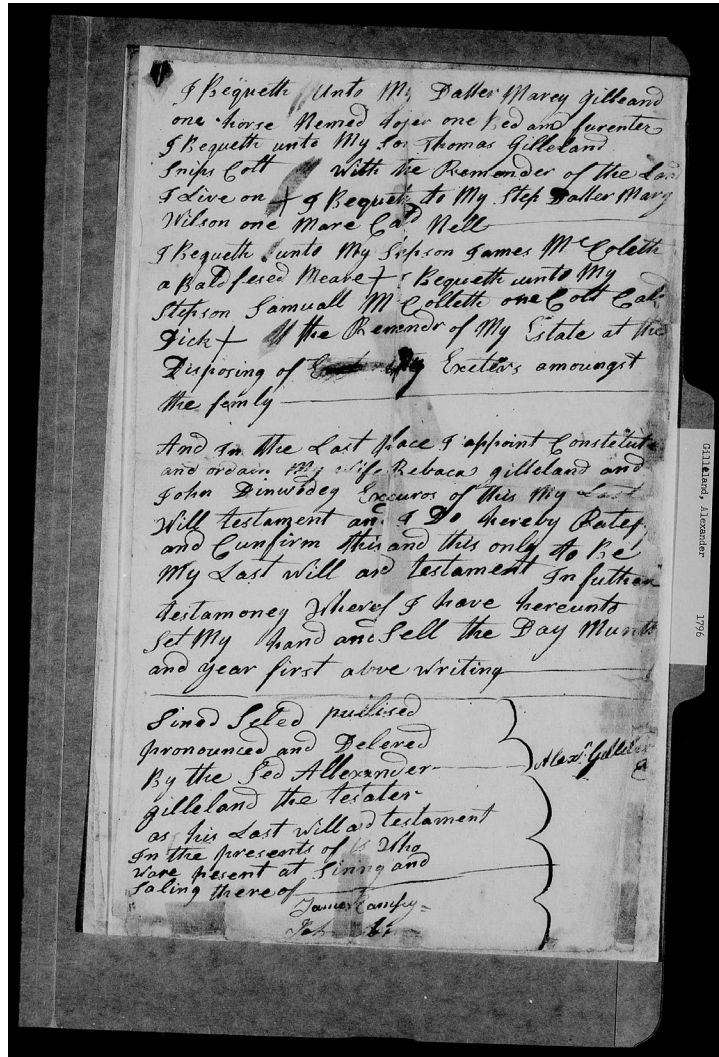 I Bequeth Unto My Datter Marey Gilleand
one horse Nemed one Bed and furenter
I Bequeth unto My So Thomas Gilleland
Snips Colt With the Remender of the Lan
I Live on + I Bequeth to My Step Datter Mary
Wilson one Mare Cad Nell
I Bequeth unto My Stpson James McColeth
a Baldfesed Meare + I Bequeth unto My
Stepson Samuall McColleth one Colt Cal
Dick + the Remendr of My Estate at the
Disposing of My Exeters amoungst
the femly
And In the Last place I appoint Constitute
and ordain My Wife Rebaca gilleland and
John Dinwodey Excuros of this My Last
Will testament and I Do hereby Ratef
and Cunfirm this and this only to Be
My Last Will and testament In futher
testamoney Wheref I have hereunto
Set My hand and Sell the Day Munth
and year first abve writing
Sined Seled puilised
pronounced and Delered
By the Sed Allexander
gilleland the testater
as his Last Will and testament
In the presents of us Who
Ware pesent at Sinng and
Saling there of
Alexr Gillelan
James
Gilleland, Alexander 1796